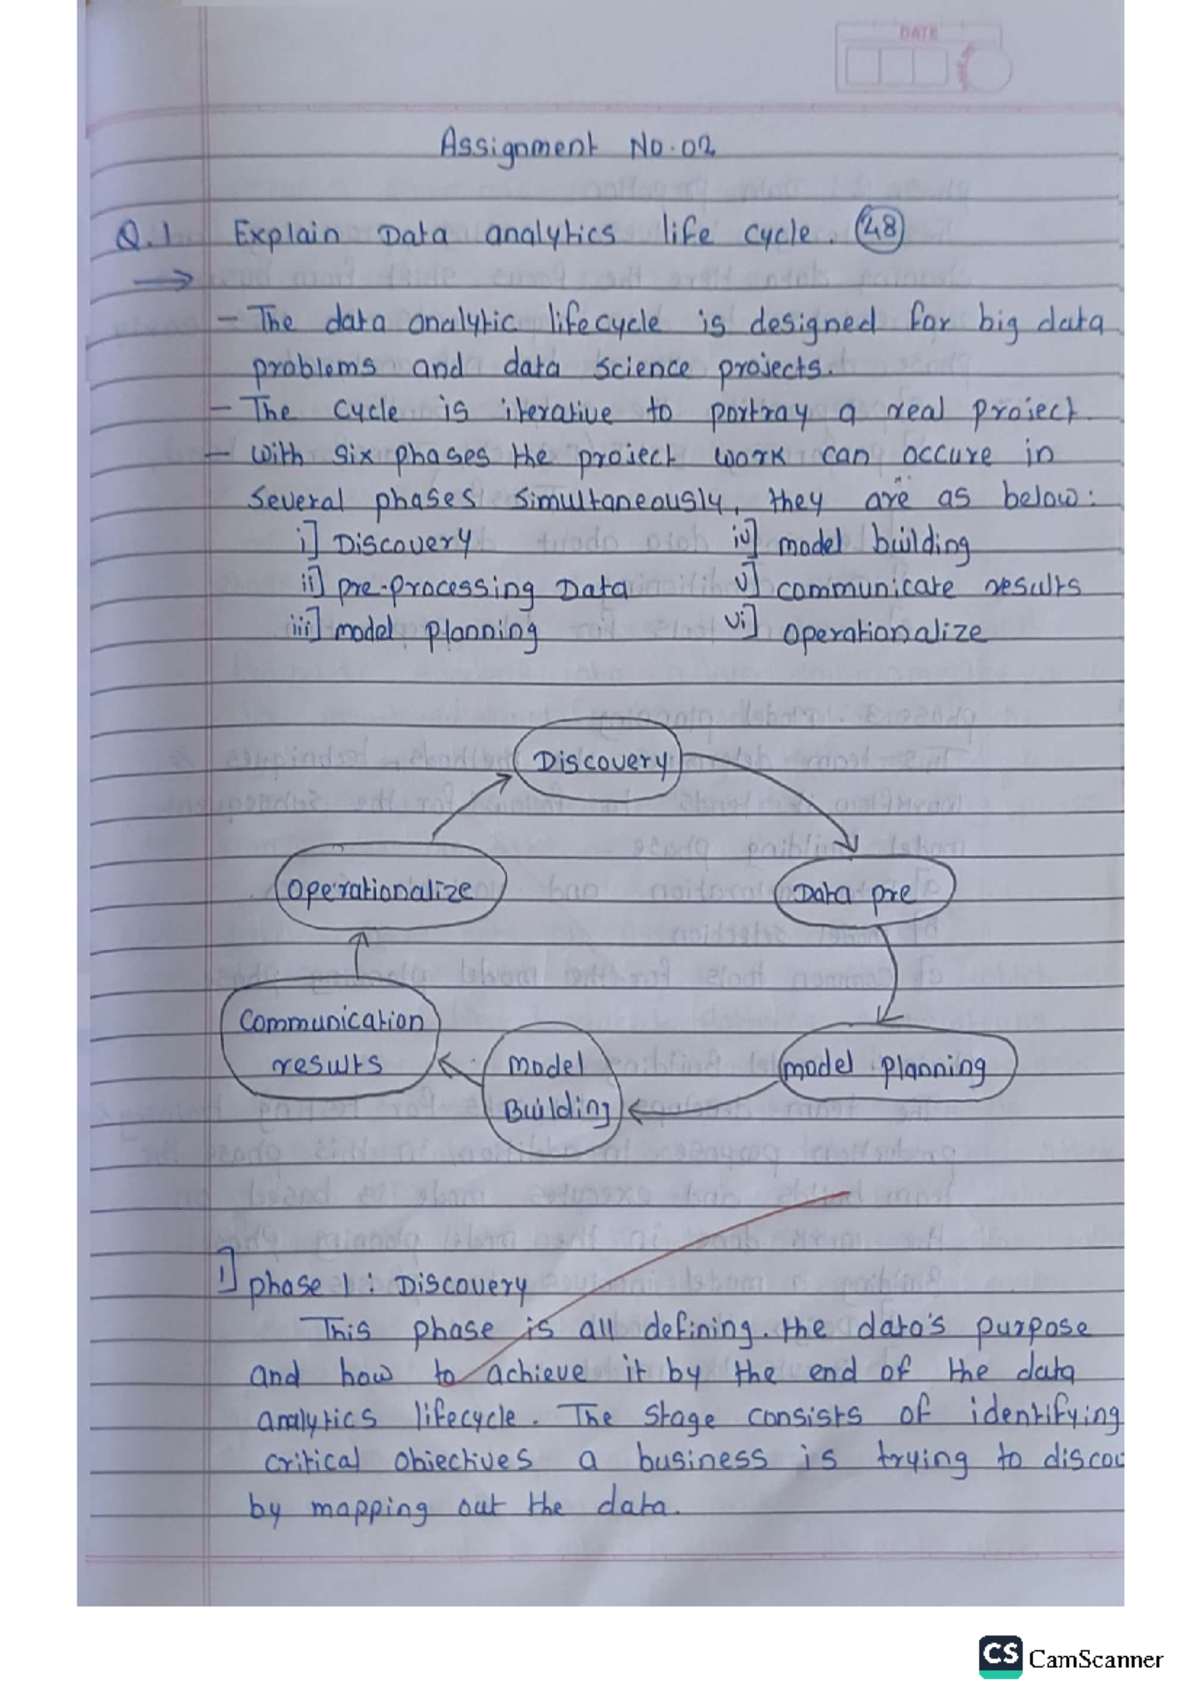 DATE
Assignment No.02
Q.1 Explain Data analytics life cycle. 48
→
- The data analytic lifecycle is designed for big data
problems and data science projects.
- The cycle is iterative to portray a real project.
- with six phases the project work can occure in
several phases simultaneously, they are as below:
i] Discovery iv] model building
ii] pre-processing Data v] communicate results
iii] model planning vi] operationalize
Discovery
Operationalize
Data pre
Communication
results
Model
Building
model planning
1] phase 1 : Discovery
This phase is all defining the data's purpose
and how to achieve it by the end of the data
analytics lifecycle. The stage consists of identifying
critical objectives a business is trying to discov
by mapping out the data.
CS CamScanner